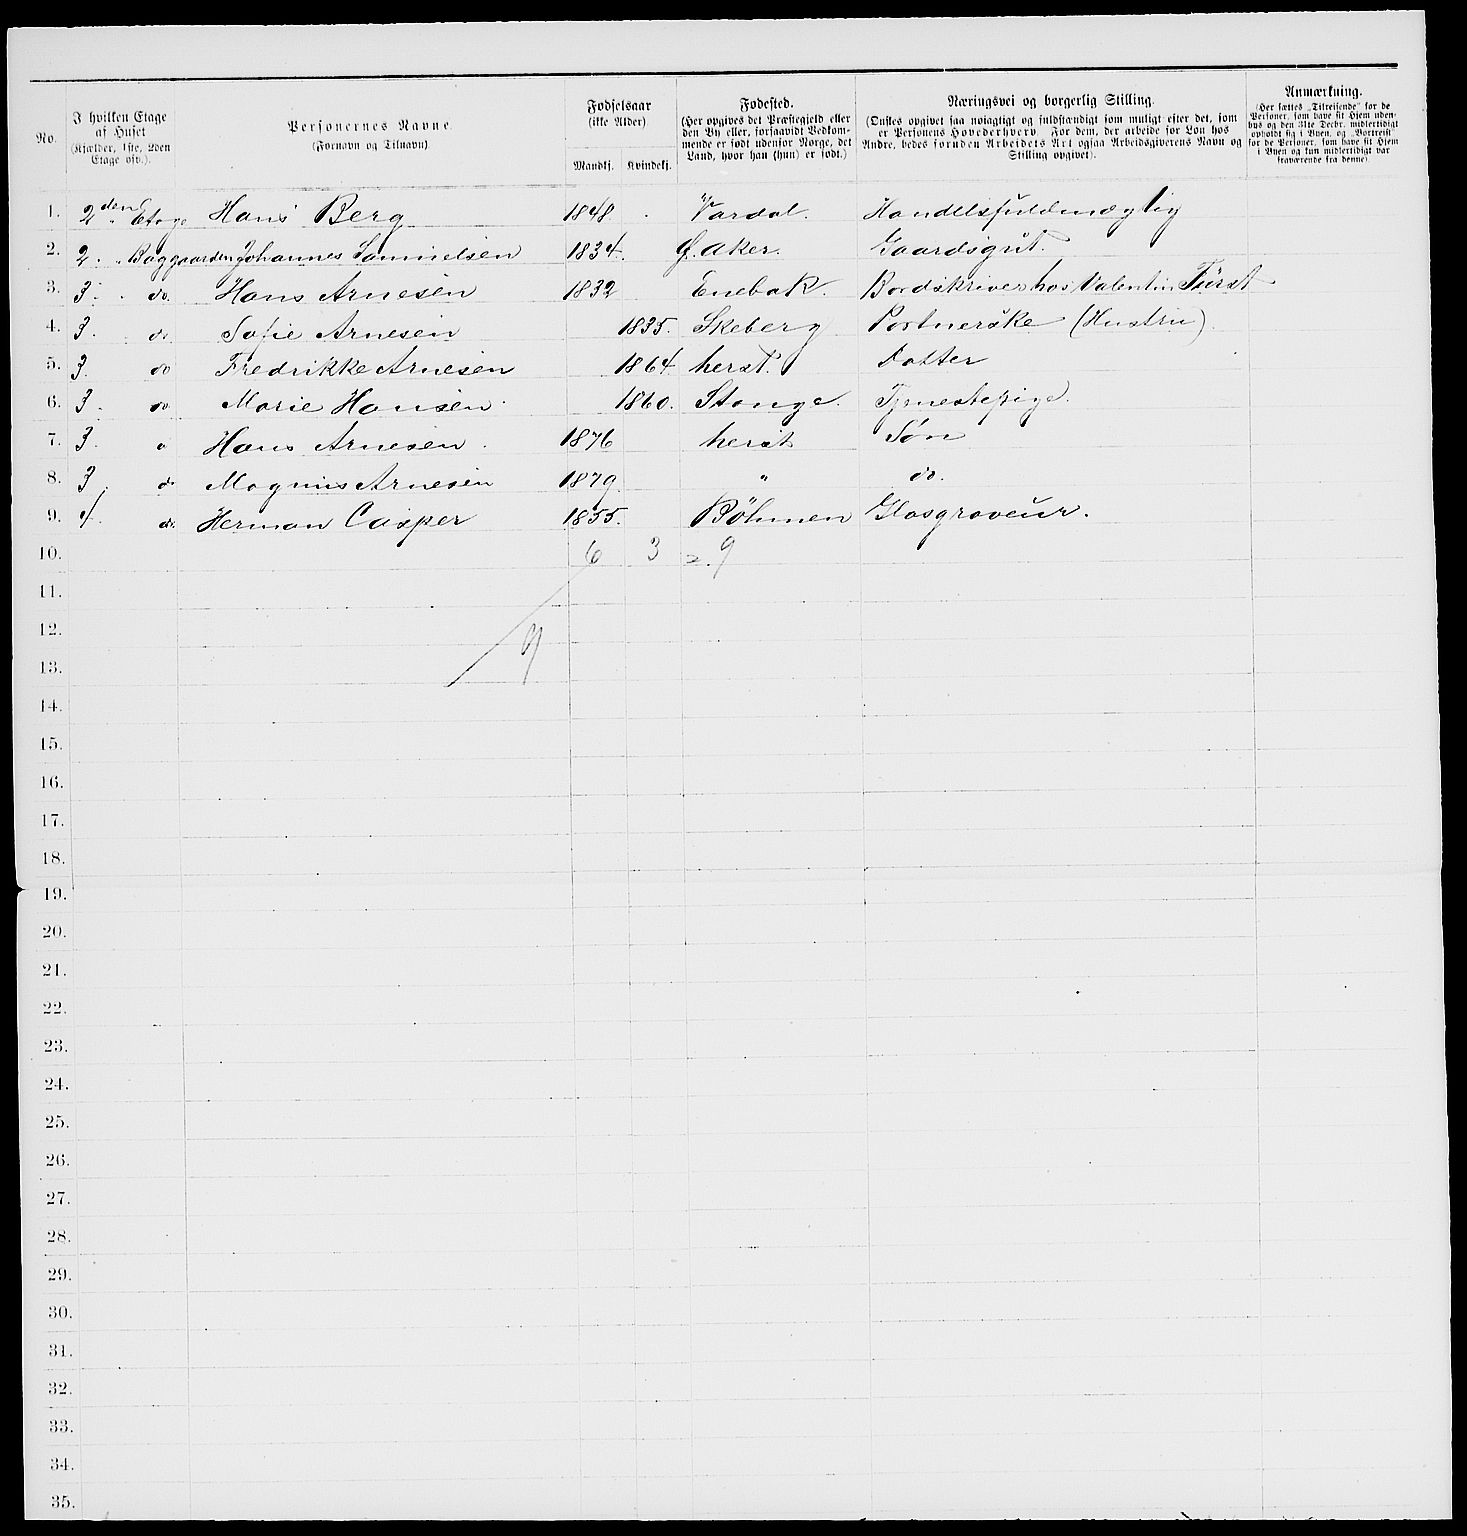 No.
I hvilken Etage af Huset (Kjælder, 1ste, 2den Etage osv.).
Personernes Navne. (Fornavn og Tilnavn).
Fødselsaar (ikke Alder)
Mandkj. Kvindekj.
Fødested. (Her opgives det Præstegjeld eller den By eller, forsaavidt Vedkommende er født udenfor Norge, det Land, hvor han (hun) er født.)
Næringsvei og borgerlig Stilling. (Ønskes opgivet saa nøiagtigt og fuldstændigt som muligt efter det, som er Personens Hovederhverv. For dem, der arbeide for Løn hos Andre, bedes foruden Arbeidets Art ogsaa Arbeidsgiverens Navn og Stilling opgivet).
Anmærkning. (Her sættes „Tilreisende" for de Personer, som have sit Hjem udenbys og den 31te Decbr. midlertidigt opholdt sig i Byen, og „Bortreist" for de Personer, som have sit Hjem i Byen og kun midlertidigt var fraværende fra denne).
1. 2den Etage Hans Berg 1848 Vardal. Handelsfuldmægtig
2. 2. " Baggaarden Johannes Samuelsen 1834. Ø. Aker. Gaardsgut.
3. 3. " do. Hans Arnesen 1832 Enebak. Bordskriver hos Valentin Fürst
4. 3. do. Sofie Arnesen 1835. Skeberg Portnerske (Hustru)
5. 3. do Fredrikke Arnesen 1864 herst. Datter
6. 3. do. Marie Hansen 1860. Stange. Tjenestepige.
7. 3. Hans Arnesen. 1876 herst Søn
8. 3. do Magnus Arnesen 1879 " do.
9. 4. do. Herman Casper 1855. Böhmen Glasgraveur.
10. 6 3 = 9
11.
12. 9
13.
14.
15.
16.
17.
18.
19.
20.
21.
22.
23.
24.
25.
26.
27.
28.
29.
30.
31.
32.
33.
34.
35.